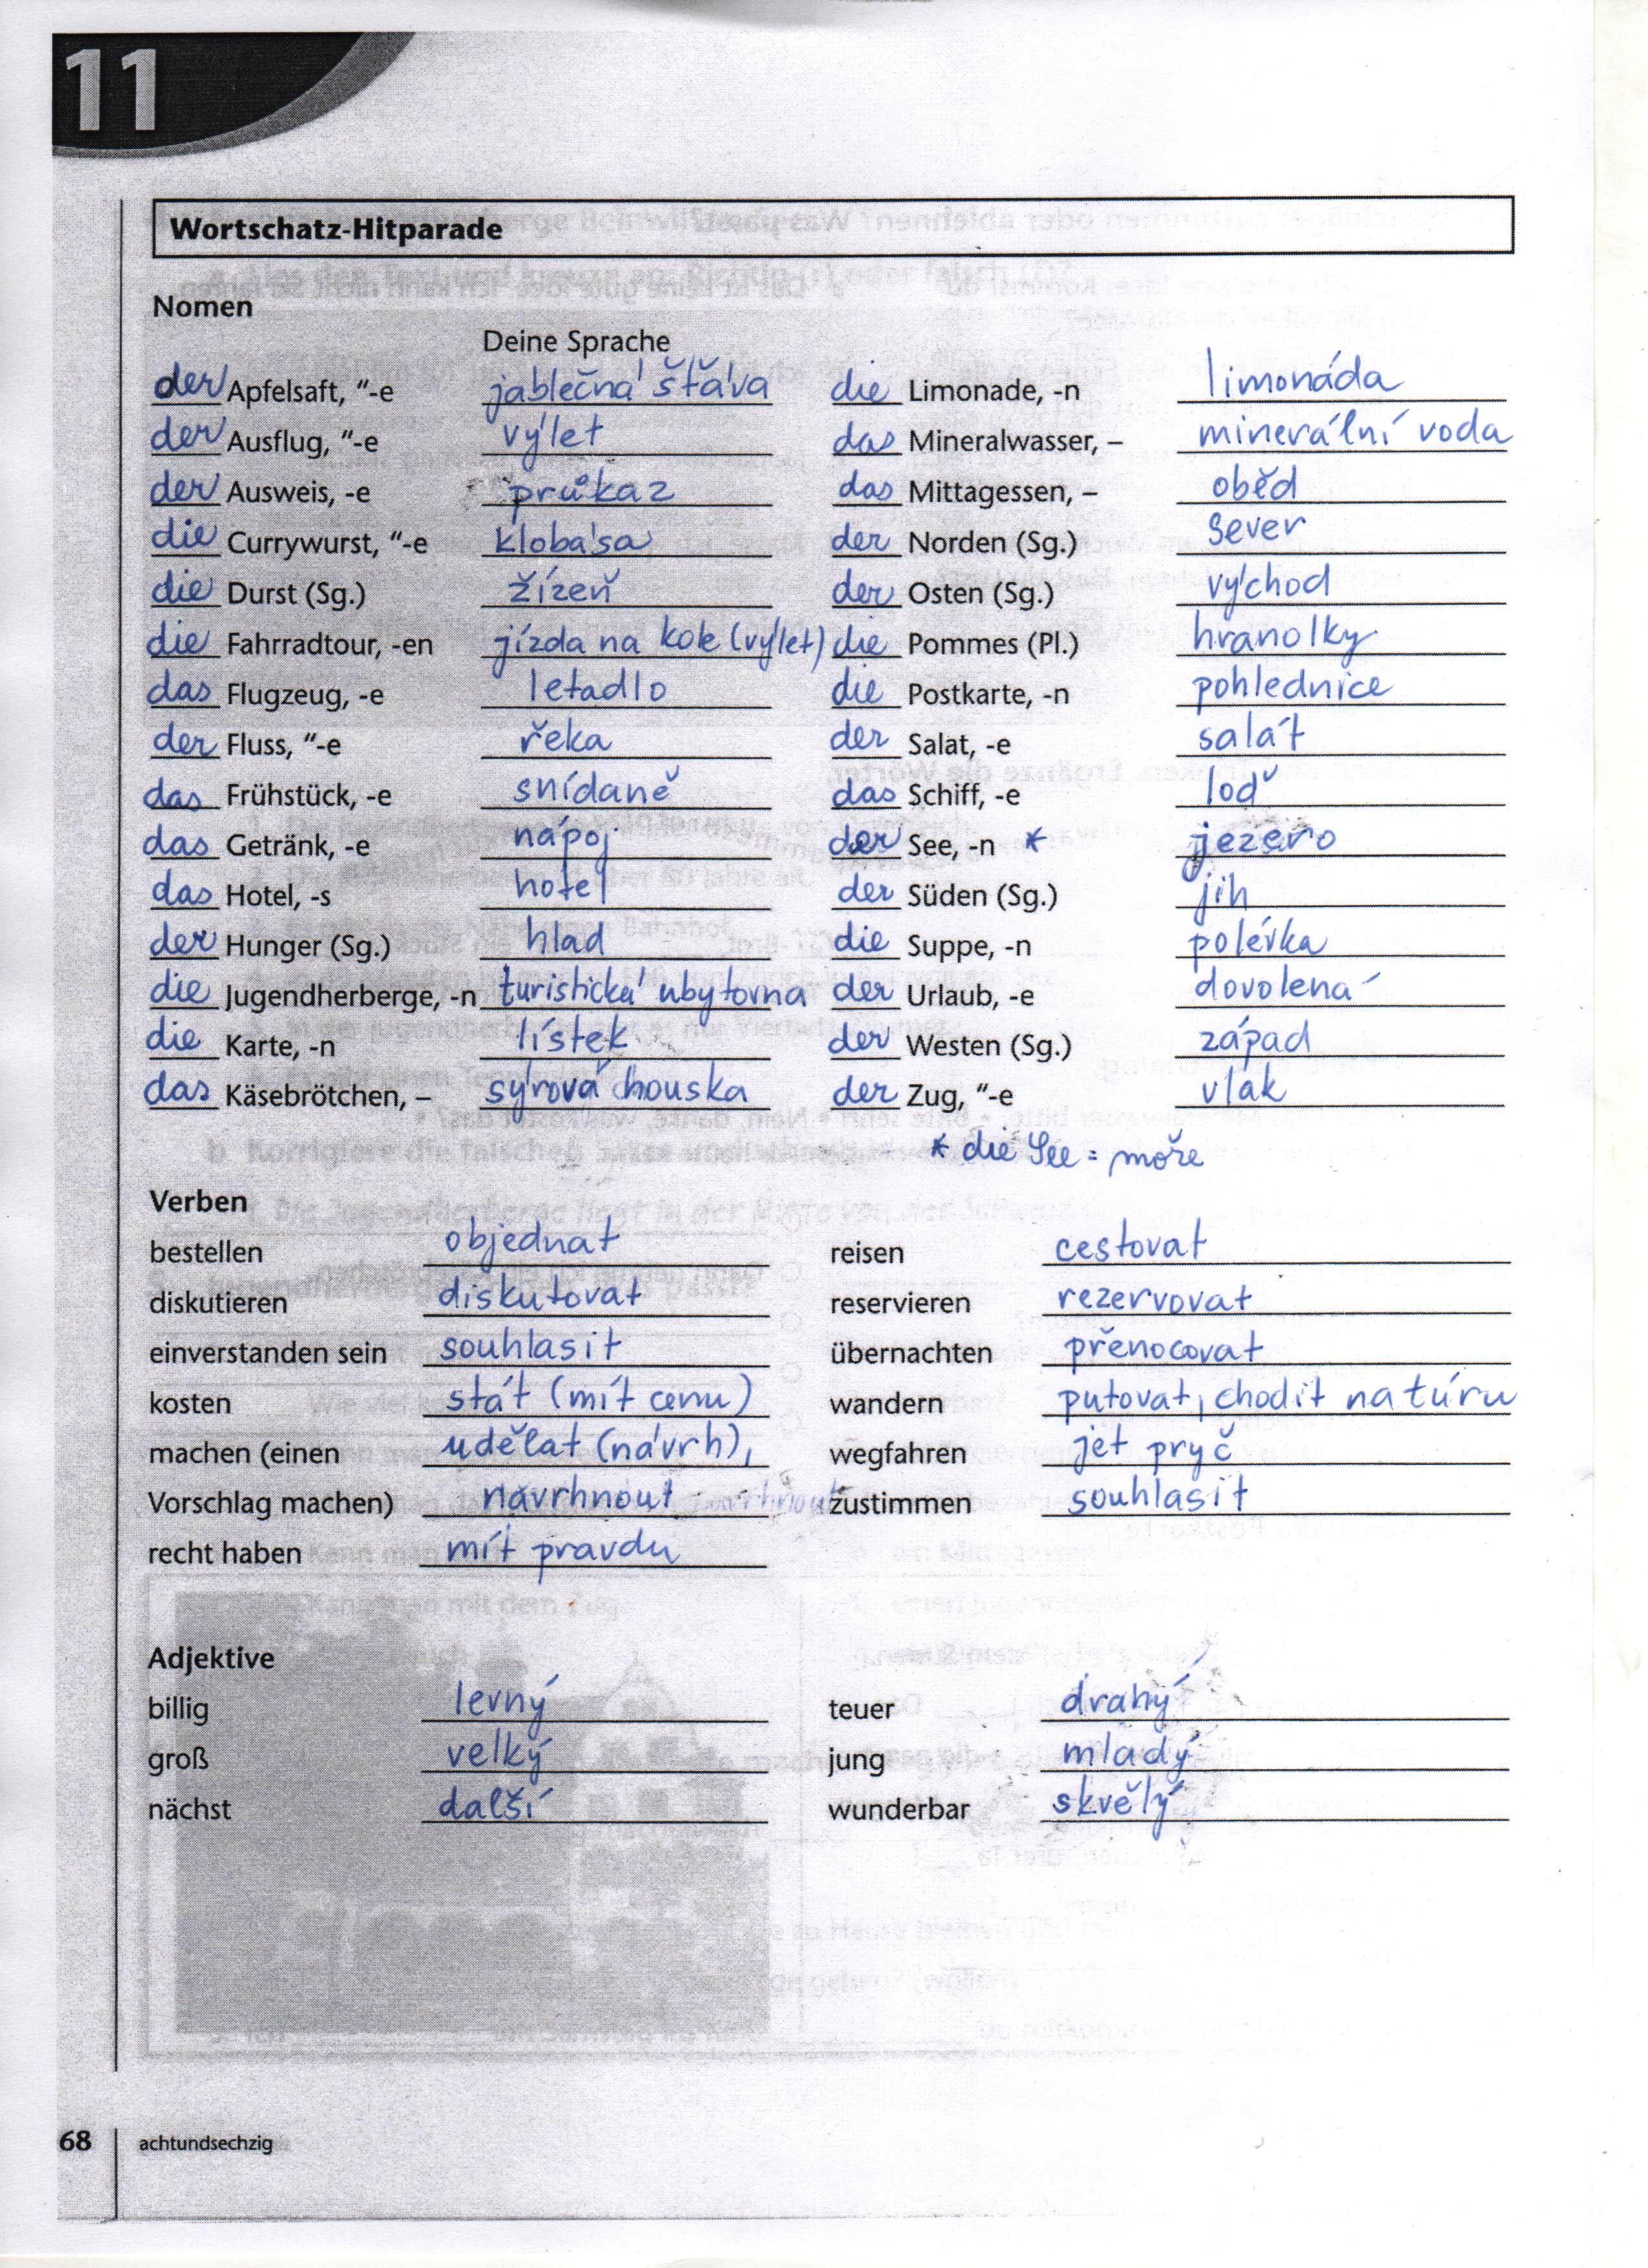 11
Wortschatz-Hitparade
Nomen
Deine Sprache
der Apfelsaft, "-e jablečná šťáva die Limonade, -n limonáda
der Ausflug, "-e výlet das Mineralwasser, – minerální voda
der Ausweis, -e průkaz das Mittagessen, – oběd
die Currywurst, "-e klobása der Norden (Sg.) sever
die Durst (Sg.) žízeň der Osten (Sg.) východ
die Fahrradtour, -en jízda na kole (výlet) die Pommes (Pl.) hranolky
das Flugzeug, -e letadlo die Postkarte, -n pohlednice
der Fluss, "-e řeka der Salat, -e salát
das Frühstück, -e snídaně das Schiff, -e loď
das Getränk, -e nápoj der See, -n * jezero
das Hotel, -s hotel der Süden (Sg.) jih
der Hunger (Sg.) hlad die Suppe, -n polévka
die Jugendherberge, -n turistická ubytovna der Urlaub, -e dovolená
die Karte, -n lístek der Westen (Sg.) západ
das Käsebrötchen, – sýrová houska der Zug, "-e vlak
* die See = moře
Verben
bestellen objednat reisen cestovat
diskutieren diskutovat reservieren rezervovat
einverstanden sein souhlasit übernachten přenocovat
kosten stát (mít cenu) wandern putovat, chodit na túru
machen (einen udělat (návrh), wegfahren jet pryč
Vorschlag machen) navrhnout zustimmen souhlasit
recht haben mít pravdu
Adjektive
billig levný teuer drahý
groß velký jung mladý
nächst další wunderbar skvělý
68 achtundsechzig